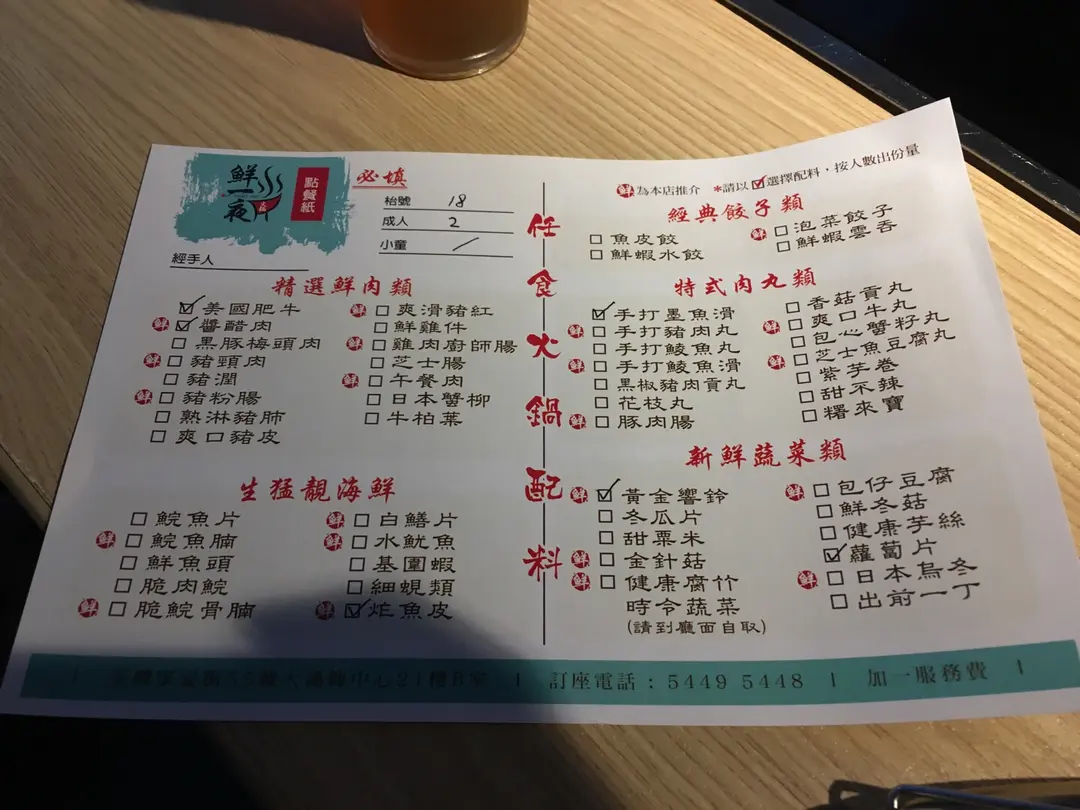 鮮一夜
點餐紙
必填
枱號 18
成人 2
小童 /
經手人
任食火鍋配料
鮮為本店推介 *請以☑選擇配料，按人數出份量
精選鮮肉類
☑ 美國肥牛
鮮 ☑ 醬醋肉
☐ 黑豚梅頭肉
鮮 ☐ 豬頸肉
☐ 豬潤
鮮 ☐ 豬粉腸
☐ 熟淋豬肺
☐ 爽口豬皮
鮮 ☐ 爽滑豬紅
☐ 鮮雞件
鮮 ☐ 雞肉廚師腸
☐ 芝士腸
鮮 ☐ 午餐肉
☐ 日本蟹柳
☐ 牛柏葉
生猛靚海鮮
☐ 鯇魚片
鮮 ☐ 鯇魚腩
☐ 鮮魚頭
☐ 脆肉鯇
鮮 ☐ 脆鯇骨腩
鮮 ☐ 白鱔片
鮮 ☐ 水魷魚
☐ 基圍蝦
☐ 細蜆類
鮮 ☑ 炸魚皮
經典餃子類
☐ 魚皮餃
☐ 鮮蝦水餃
鮮 ☐ 泡菜餃子
☐ 鮮蝦雲吞
特式肉丸類
☑ 手打墨魚滑
鮮 ☐ 手打豬肉丸
☐ 手打鯪魚丸
鮮 ☐ 手打鯪魚滑
☐ 黑椒豬肉貢丸
☐ 花枝丸
鮮 ☐ 豚肉腸
☐ 香菇貢丸
鮮 ☐ 爽口牛丸
☐ 包心蟹籽丸
鮮 ☐ 芝士魚豆腐丸
☐ 紫芋卷
☐ 甜不辣
☐ 糬來寶
新鮮蔬菜類
鮮 ☑ 黃金響鈴
☐ 冬瓜片
☐ 甜粟米
鮮 ☐ 金針菇
鮮 ☐ 健康腐竹
時令蔬菜
(請到廳面自取)
鮮 ☐ 包仔豆腐
☐ 鮮冬菇
☐ 健康芋絲
☑ 蘿蔔片
鮮 ☐ 日本烏冬
☐ 出前一丁
中心21樓B室 | 訂座電話：5449 5448 | 加一服務費 |